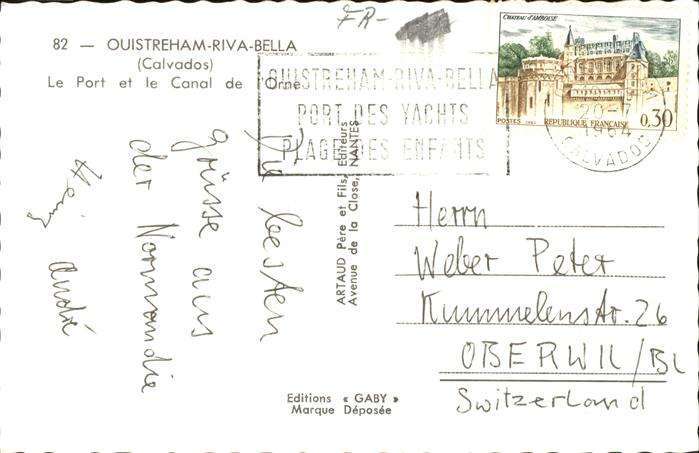 FR-
82 — OUISTREHAM-RIVA-BELLA
(Calvados)
Le Port et le Canal de l'Orne
OUISTREHAM-RIVA-BELLA
PORT DES YACHTS
PLAGE DES ENFANTS
CHATEAU d'AMBOISE
POSTES 1963 REPUBLIQUE FRANCAISE 0,30
20-7
1964
CALVADOS
Die besten
grüsse aus
der Normandie
Heinz André
ARTAUD Père et Fils, Editeurs
Avenue de la Close, NANTES
Herrn
Weber Peter
Kummelenstr. 26
OBERWIL/BL
Switzerland
Editions « GABY »
Marque Déposée